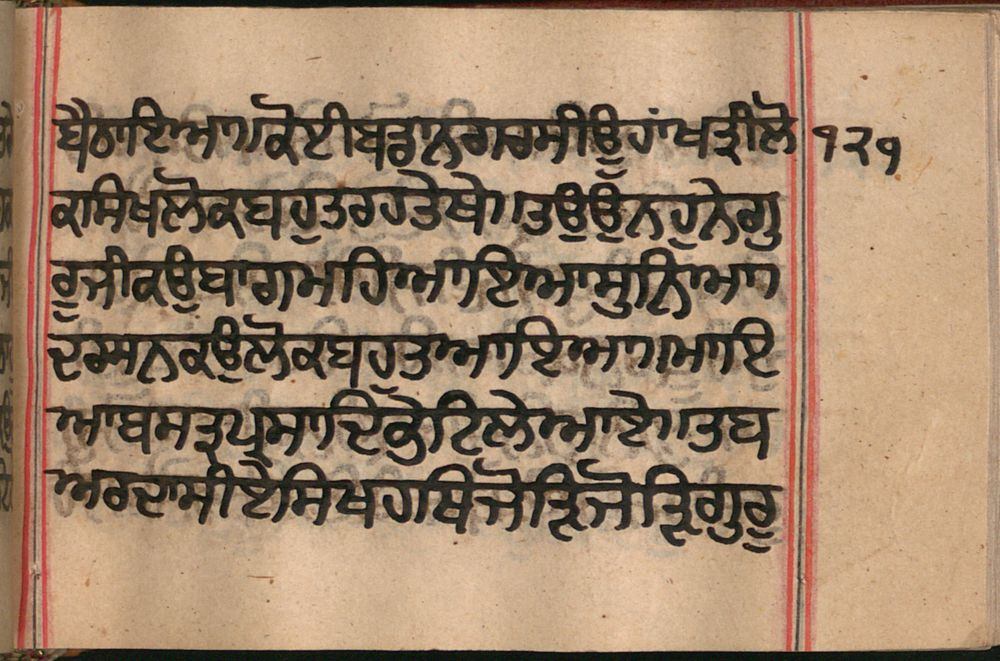 ਬੈਠਾਇਆ॥ਕੋਈਬਡਾਨਗਰਸੀਊਹਾਂਖਤ੍ਰੀਲੋ ੧੨੧
ਕਸਿਖਲੋਕਬਹੁਤਰਹਤੇਥੇ॥ਤਉਉਨਹੁਨੇਗੁ
ਰੂਜੀਕਉਬਾਗਮਹਿਆਇਆਸੁਨਿਆ॥
ਦਰਸਨਕਉਲੋਕਬਹੁਤੁਆਇਆ॥ਮਾਇ
ਆਬਸਤ੍ਰਪ੍ਰਸਾਦਿਭੇਟਿਲੇਆਏ॥ਤਬ
ਅਰਦਾਸੀਏਸਿਖਹਾਥਿਜੋੜਿਜੋੜਿਗੁਰੂ